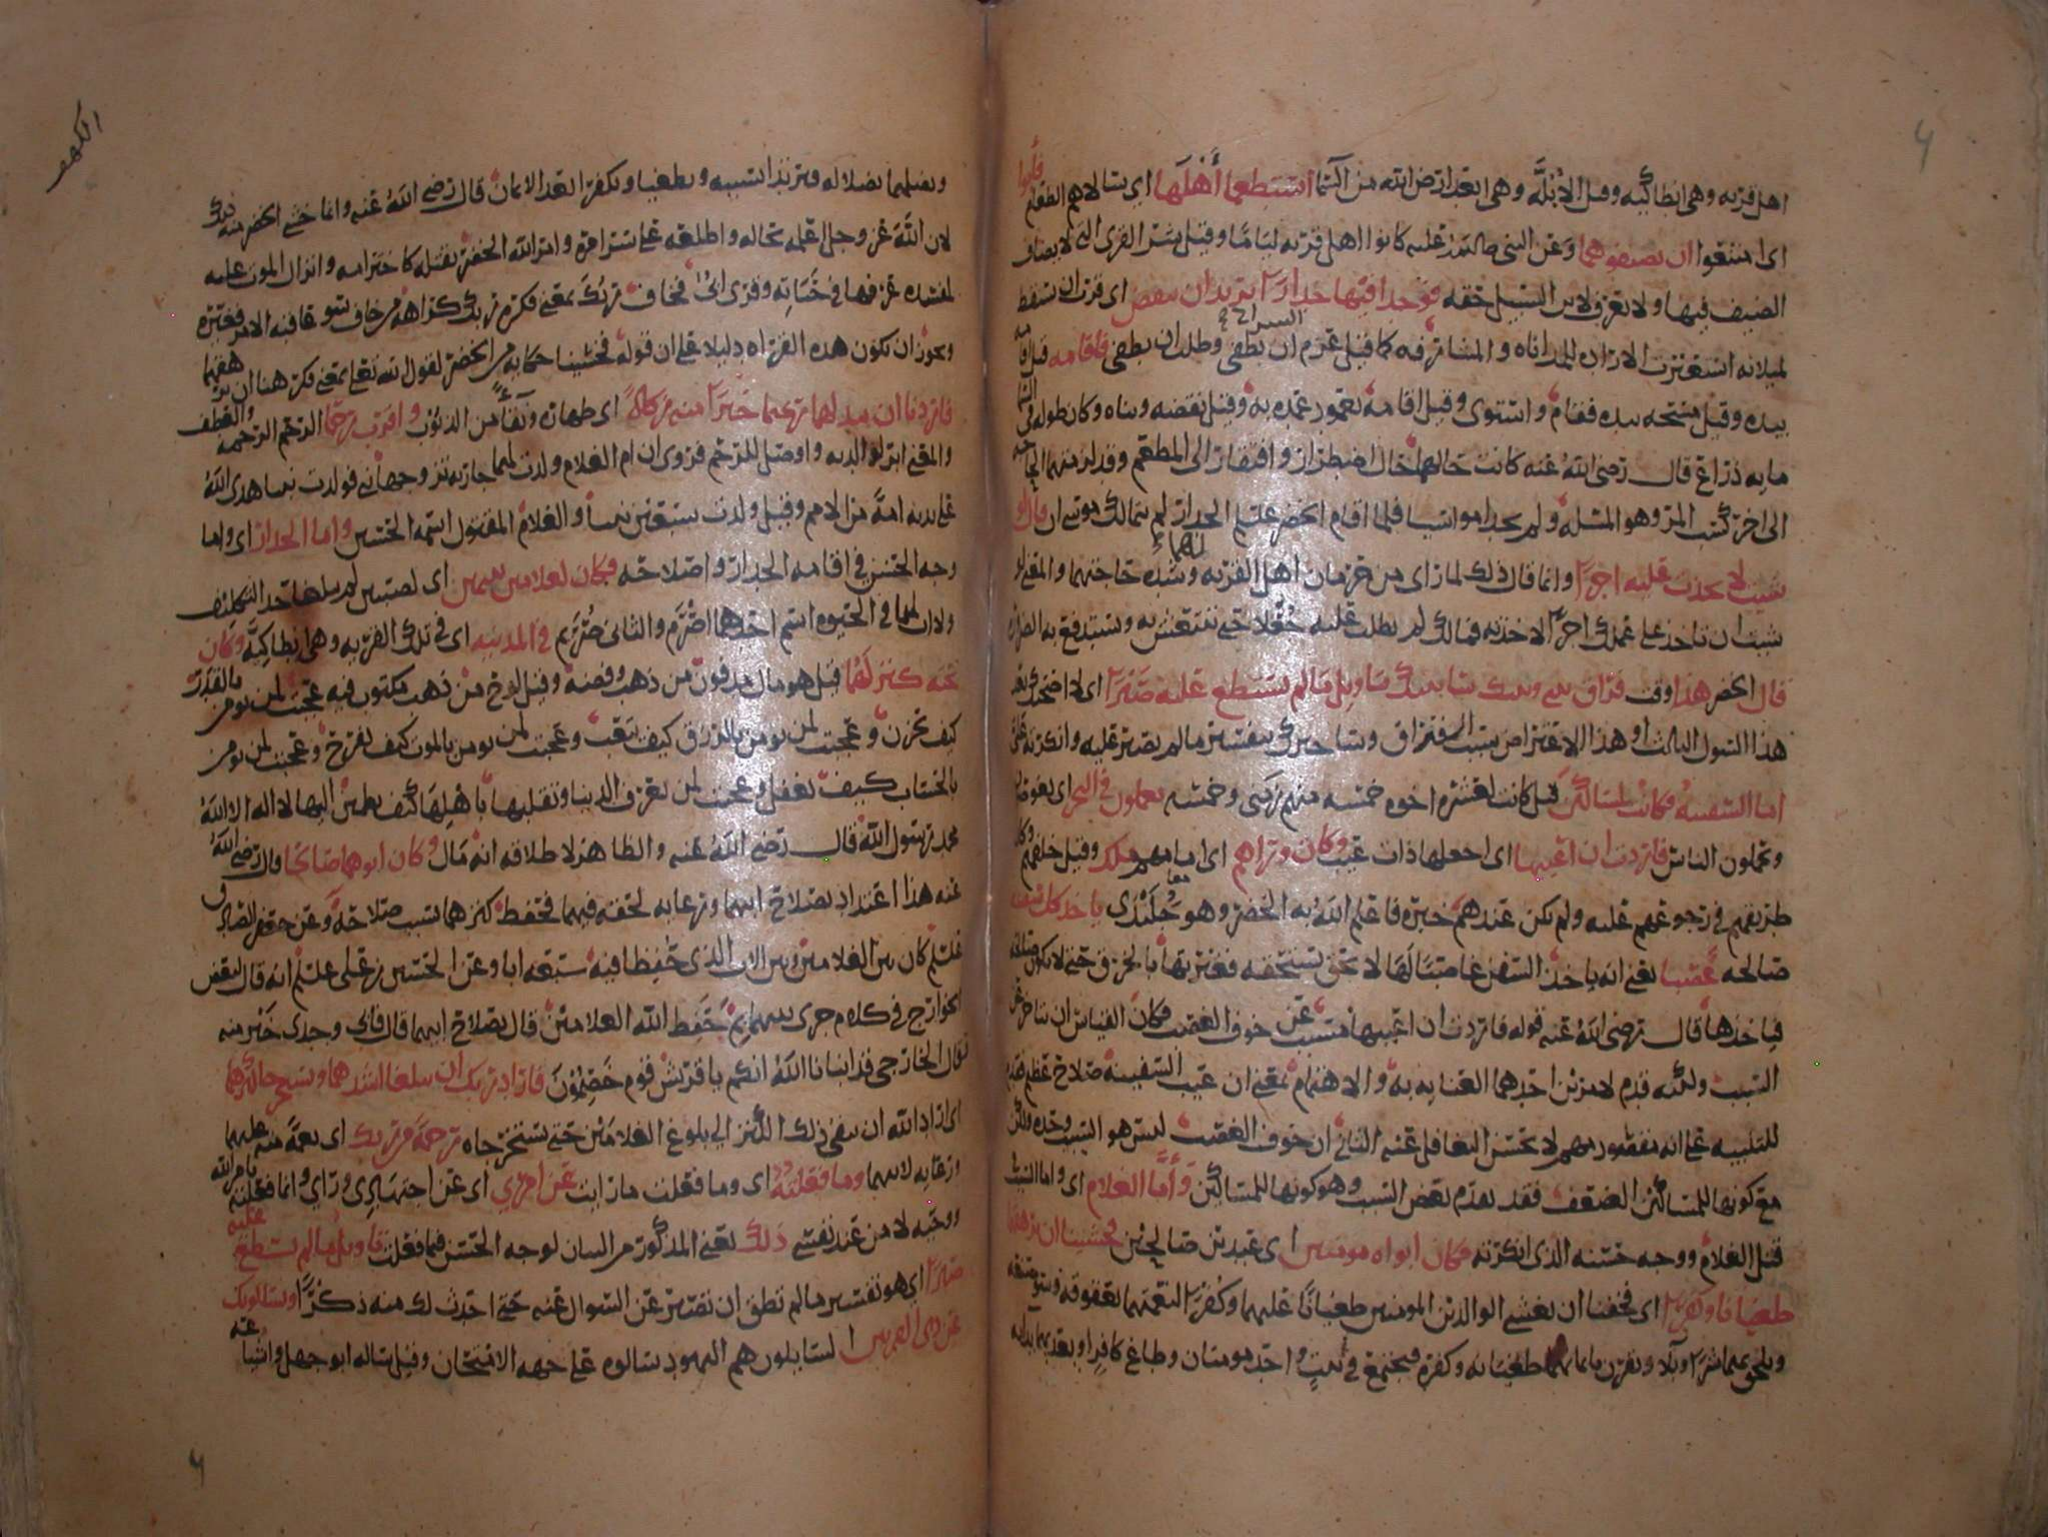 اهل قرية وهي انطاكيه وقيل الأُبُلَّة وهي ابعد ارض الله من السما استطعما أهلها اي سالاهم الطعام فأبوا
اى امتنعوا ان يضيفوهما وعن النبى صلى الله عليه كانوا اهل قرية لياما وقيل شر القرى التي لا يضاف
الضيف فيها ولا يعرف لابن السبيل حقه فوجدا فيها جدارا يريد ان ينقض اى قرب ان يسقط
لميلانه استعيرت الارادة للمداناه والمشارفه كما قيل عزم السراج ان يطفى وطلب ان يطفى فأقامه قيل اقامه
بيده وقيل مسحه بيده فقام واستوى وقيل اقامه بعمود عمده به وقيل نقضه وبناه وكان طوله فى السما
مايه ذراع قال رضى الله عنه كانت حالهما حال اضطرار وافتقار الى المطعم وقد لزمتهما الحاجه
الى اخر كسب المر وهو المسله ولم يجدا مواسيا فلما اقام الخضر عليلم الجدار لم يتمالك موسى ان قال لو
شيت لاتخذت عليه اجرا وانما قال ذلك لما راى من حرمان اهل القريه لهما وشده حاجتهما والمعنى لو
شيت ان تاخذ على عملك اجرا لاخذته فمالك لم تطلب عليه جُعْلا حتى ننتعش به ونستدفع به الضرورة
قال الخضر هذا وقت فراق بينى وبينك سانبيك بتاويل ما لم تستطع عليه صبرا اى
هذا السول الثالث او هذا الاعتراض سبب الافتراق وساخبرك بتفسير ما لم تصبر عليه وانكرته على
اما السفينه فكانت لمساكين قيل كانت لعشره اخوه خمسه منهم زمنى وخمسه يعملون فى البحر اى يغوصون
ويحملون الناس فاردت ان اعيبها اى اجعلها ذات عيب وكان وراهم اى امامهم ملك وقيل خلفهم وكان
طريقهم في رجوعهم عليه ولم يكن عندهم خبره فاعلم الله به الخضر وهو جُلَنْدَى ياخذ كل سفينه
صالحه غصبا يعنى انه ياخذ السفن غاصبا لها لا بحق يستحقه فعيرتها بالخرق حتى لا تكون صالحه
فياخذها قال رضى الله عنه قوله فاردت ان اعيبها مسبب عن خوف الغصب فكان القياس ان يتاخر عن
السبب ولكنه قدم لامرين احدهما العنايه به والاهتمام بمعنى ان عيب السفينه صلاح عظيم فقدم
للتنبيه على انه مقصود مهم لا يحسن التغافل عنه الثانى ان خوف الغصب ليس هو السبب وحده ولكن
مع كونها للمساكين الضعف فقد تقدم بعض السبب وهو كونها للمساكين وأَمَّا الغلام اى واما السبب
قتل الغلام ووجه حسنه الذى انكرته فكان ابواه مومنين اى عبدين صالحين فخشينا ان يرهقهما
طغيانا وكفرا اى فخفنا ان يغشى الوالدين المومنين طغيانا عليهما وكُفْرًا لنعمتهما بعقوقه وسو صنيعه
ويلحق بهما شرا وبلا ويقرن بايمانهما طغيانه وكفره فيجتمع في بيت واحد مومنان وطاغ كافر او يعديهما بدائه
الكهف
ويضلهما بضلاله فيرتدا بسببه ويطغيا ويكفرا بعد الايمان قال رضى الله عنه وانما خشى الخضر منه ذلك
لان الله عز وجل اعلمه بحاله واطلعه على سرامره وامر الله الخضر بقتله كاخترامه وانزال الموت عليه
لمفسده عرفها في حياته وقرى ابىّ فخاف ربك بمعنى فكره ربك كراهه من خاف سو عاقبه الامر فغيره
ويجوز ان تكون هذه القراه دليلا على ان قوله فخشينا حكايه من الخضر لقول الله تعالى بمعنى فكرهنا ان يرهقهما
فاردنا ان يبدلهما ربهما خيرا منه زكاةً اى طهاره ونقاءً من الذنوب واقرب رحما الرحم الرحمه والعطف
والمعنى ابر لوالديه واوصل للرحم فروى ان ام الغلام ولدت لهما جاريه تزوجها نبى فولدت نبيا هدى الله
على يديه امة من الامم وقيل ولدت سبعين نبيا والغلام المقتول اسمه الحسين واما الجدار اى واما
وجه الحسن فى اقامه الجدار واصلاحه فكان لغلامين يتيمين اى لصبيين لم يبلغا حد التكليف
ولا اب لهما فى الحيوه اسم احدهما اصْرَم والثانى صُرَيم فى المدينه اى فى تلك القريه وهى انطاكيه وكان
تحته كنز لهما قيل هو مال مدفون من ذهب وفضه وقيل لوح من ذهب مكتوب فيه عجبت لمن يومن بالقدر
كيف يحزن وعجبت لمن يومن بالرزق كيف يتعب وعجبت لمن يومن بالموت كيف يفرح وعجبت لمن يومن
بالحساب كيف يغفل وعجبت لمن يعرف الدنيا وتقلبها باهلها كيف يطمئن اليها لا اله الا الله
محمد رسول الله قال رضى الله عنه والظاهر لاطلاقه انه مال وكان ابوهما صالحا قال رضى الله
عنه هذا اعتداد بصلاح ابيهما ورعايه لحقه فيهما فحفظ كنزهما بسبب صلاحه وعن جعفر الصادق
عليلم كان بين الغلامين وبين الاب الذى حُفِظا فيه سبعه ابا وعن الحسين بن على عليلم انه قال لبعض
الخوارج فى كلام جرى بينهما بم حفظ الله الغلامين قال بصلاح ابيهما قال فابى وجدى خير منه
فقال الخارجى قد انبانا الله انكم يا قريش قوم خَصِمُونَ فاراد ربك ان يبلغا اشدهما ويستخرجا كنزهما
اى اراد الله ان يبقى ذلك الكنز الى بلوغ الغلامين حتى يستخرجاه رحمة من ربك اى نعمة منه عليهما
ورعايه لابيهما وما فعلتُهُ اى وما فعلت ما رايت عن امري اى عن اجتهادى ورايي وانما فعلته بامر الله
ووحيه لا من عند نفسى ذلك يعنى المذكور من البيان لوجه الحسن فيما فعلت تاويل ما لم تسطع عليه
صبرا اي هو تفسير ما لم تطق ان تصبر عن السوال عنه حتى احدث لك منه ذكْرًا ويسئلونك
عن ذى القرنين السايلون هم اليهود سالوه على جهه الامتحان وقيل ساله ابو جهل واشياعه